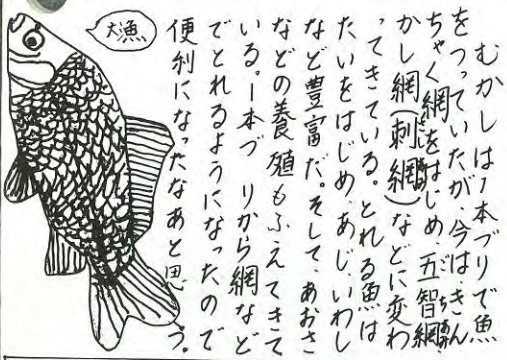 むかしは1本づりで魚
をつっていたが、今はきん
ちゃく網をはじめ、五智網
かし網(刺網)などに変わ
ってきている。とれる魚は
たいをはじめ、あじ、いわし
など豊富だ。そして、あおさ
などの養殖もふえてきて
いる。1本づりから網など
でとれるようになったので
便利になったなあと思う。
大漁